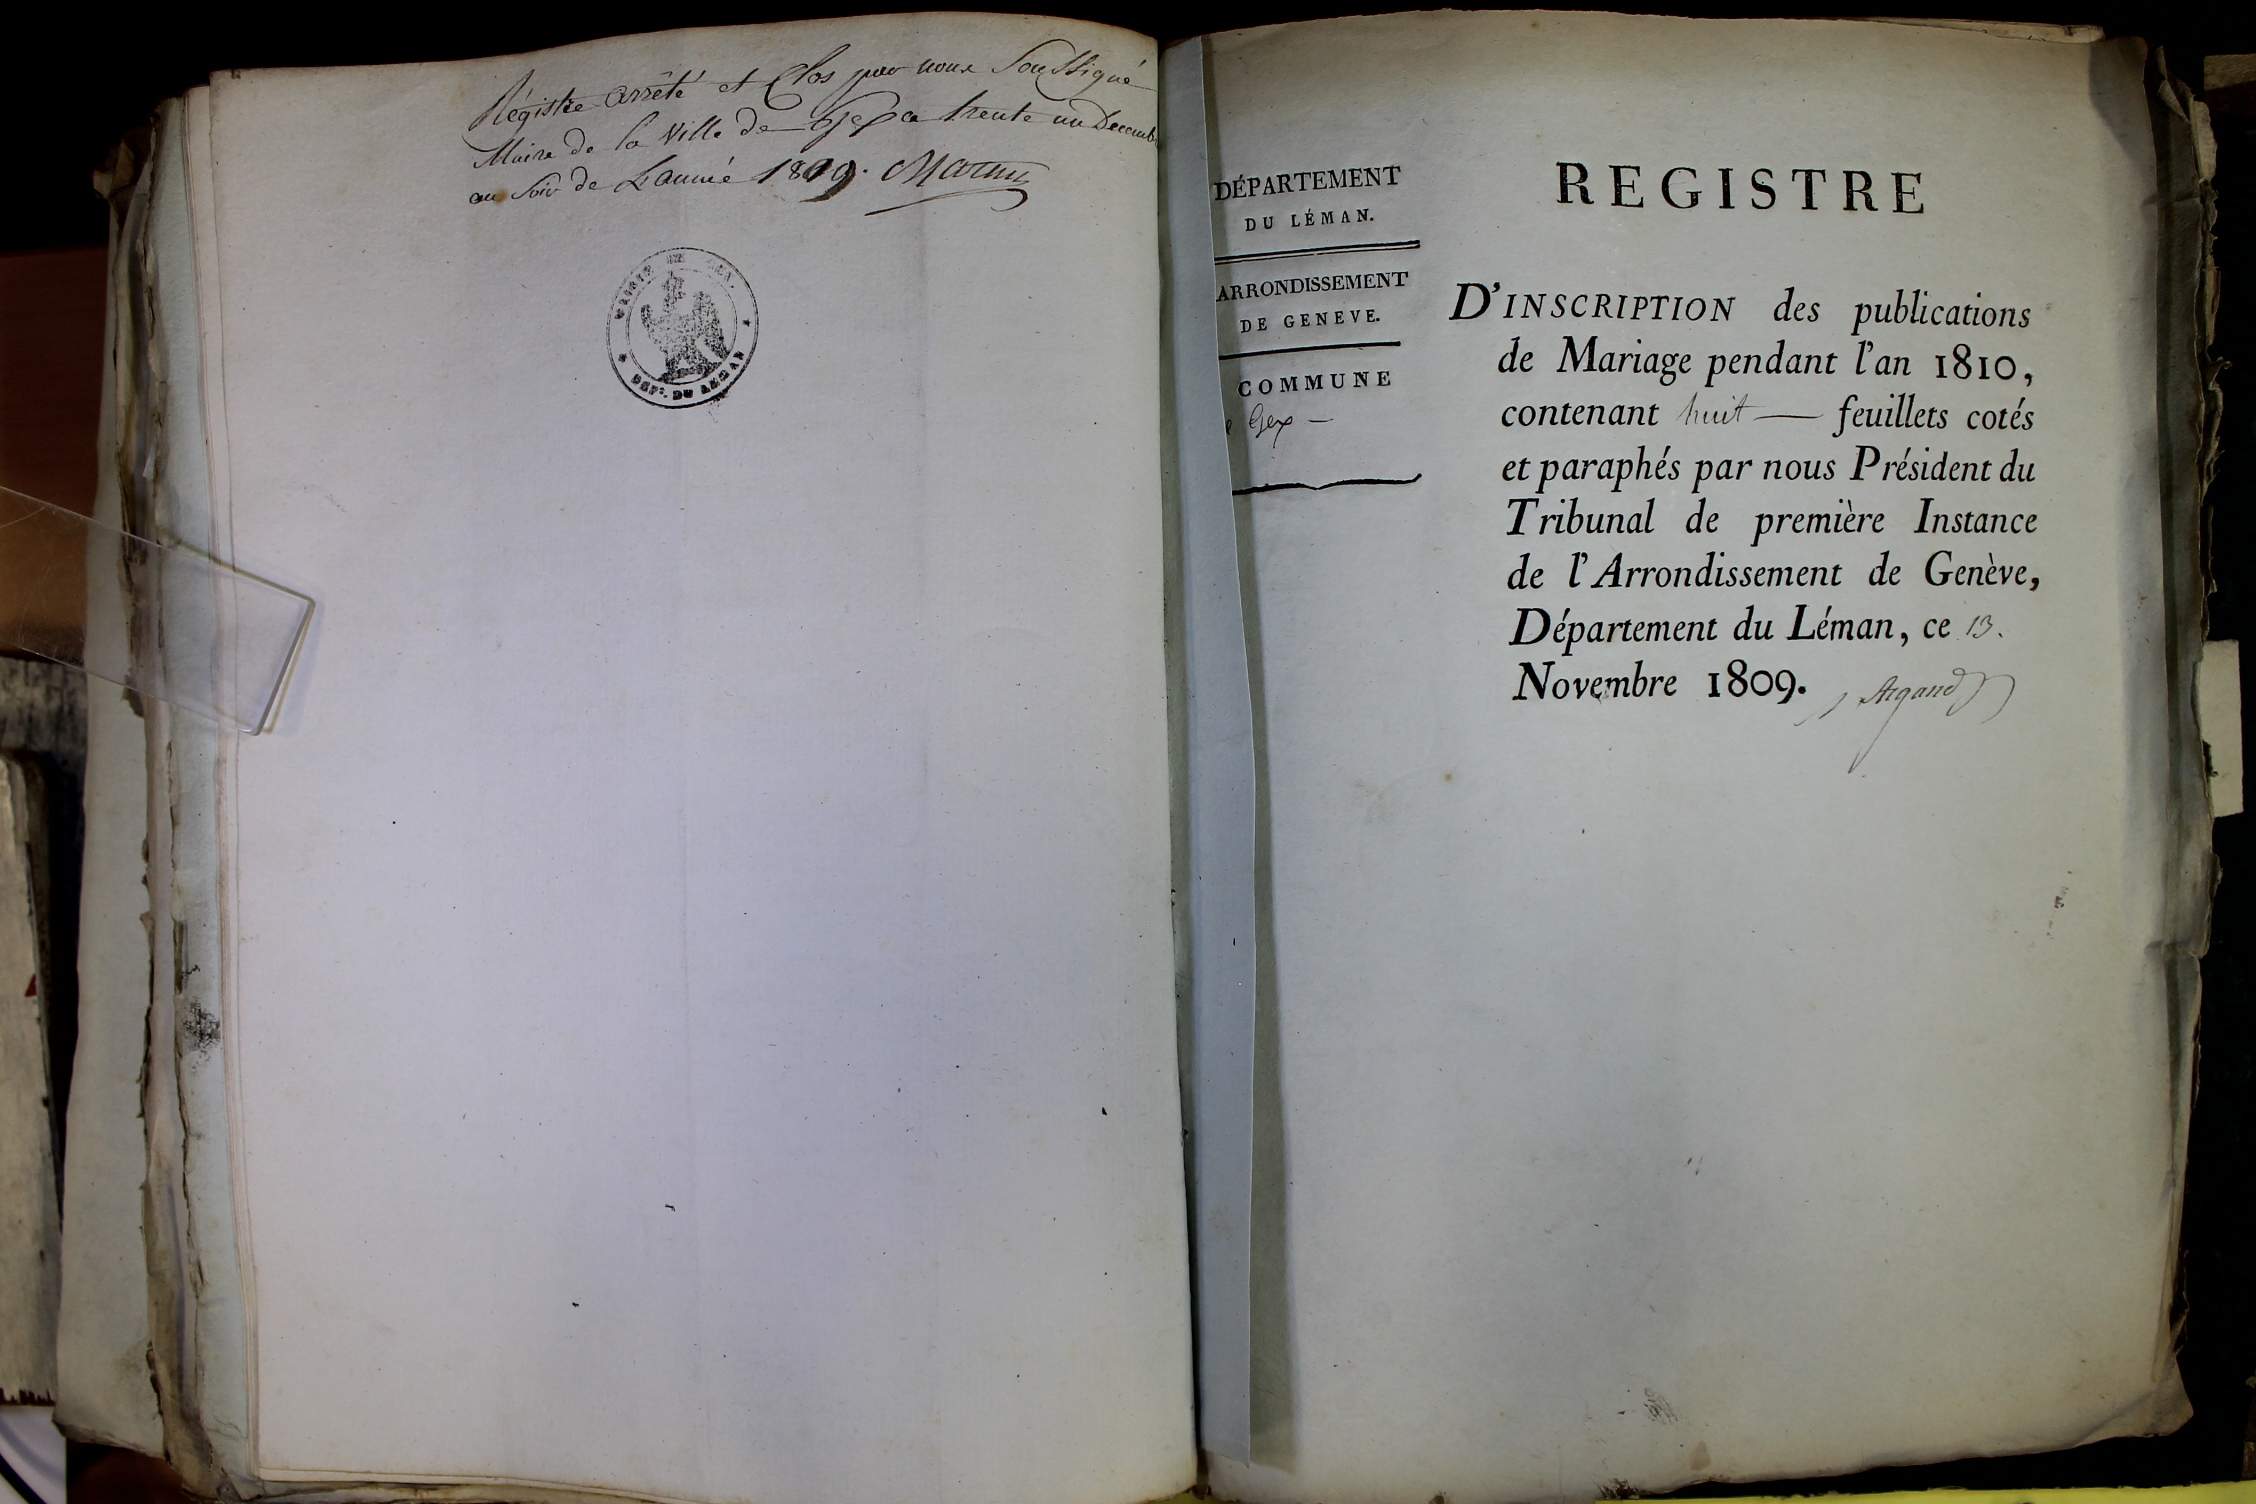 Régistre arrêté et Clos par nous Soussigné
Maire de la Ville de Gex ce trente un Decemb
au Soir de L'année 1809.
MAIRIE DE GEX.
DEPT. DU LEMAN
DÉPARTEMENT
DU LÉMAN.
ARRONDISSEMENT
DE GENEVE.
COMMUNE
e Gex —
REGISTRE
D'INSCRIPTION des publications
de Mariage pendant l'an 1810,
contenant huit — feuillets cotés
et paraphés par nous Président du
Tribunal de première Instance
de l'Arrondissement de Genève,
Département du Léman, ce 13.
Novembre 1809. Argand